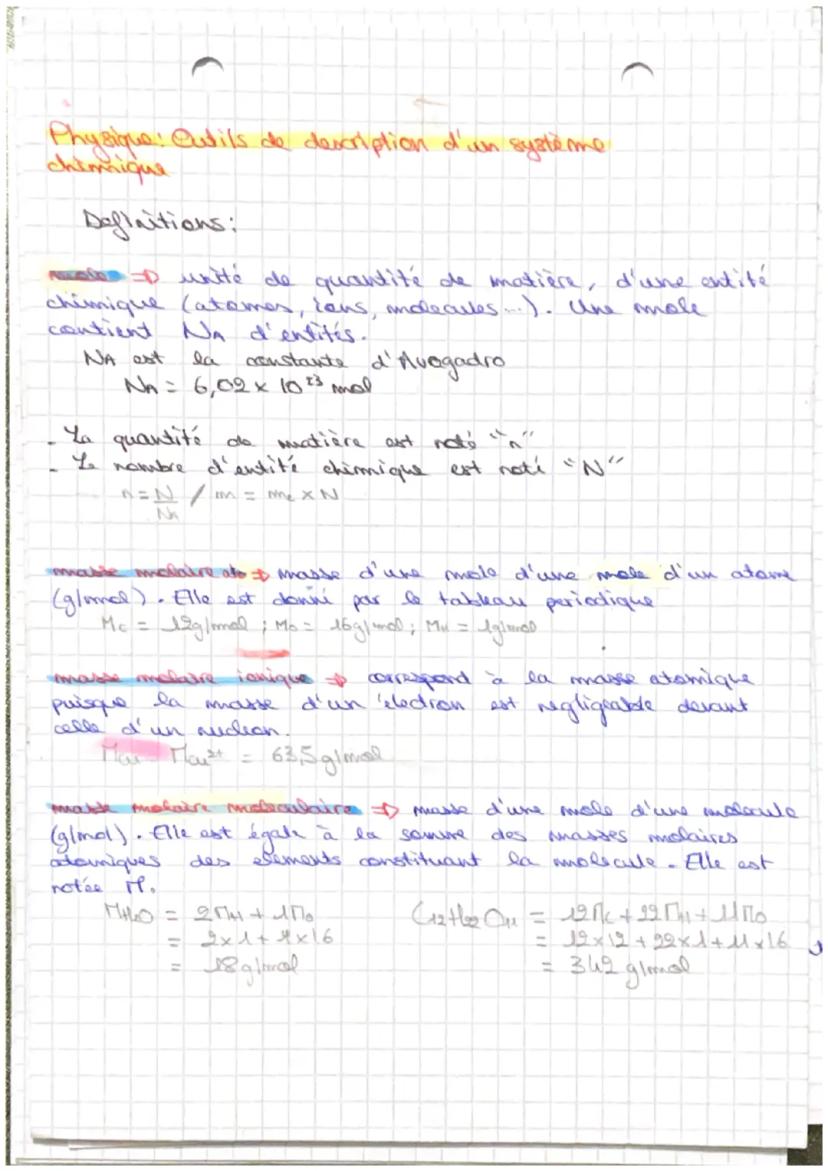 Physique: Outils de description d'un système
chimique
Definitions:
mole => unité de quantité de matière, d'une entité
chimique (atomes, ions, molecules...). Une mole
contient NA d'entités.
NA est la constante d'Avogadro
NA = 6,02 x 10²³ mol
- La quantité de matière est noté "n"
- Le nombre d'entité chimique est noté "N"
n = N / m = me x N
NA
masse molaire ato => masse d'une mole d'une mole d'un atome
(g/mol). Elle est donné par le tableau periodique
Mc = 12g/mol ; Mo = 16g/mol ; MH = 1g/mol
masse molaire ionique => correspond à la masse atomique
puisque la masse d'un électron est negligeable devant
celle d'un nucleon.
Mcu Mcu²⁺ = 63,5 g/mol
masse molaire moleculaire => masse d'une mole d'une molecule
(g/mol). Elle est égale à la somme des masses molaires
atomiques des elements constituant la molecule. Elle est
notée M.
MH2O = 2MH + 1MO
= 2x1 + 1x16
= 18g/mol
C12H22O11 = 12MC + 22MH + 11MO
= 12x12 + 22x1 + 11x16
= 342 g/mol